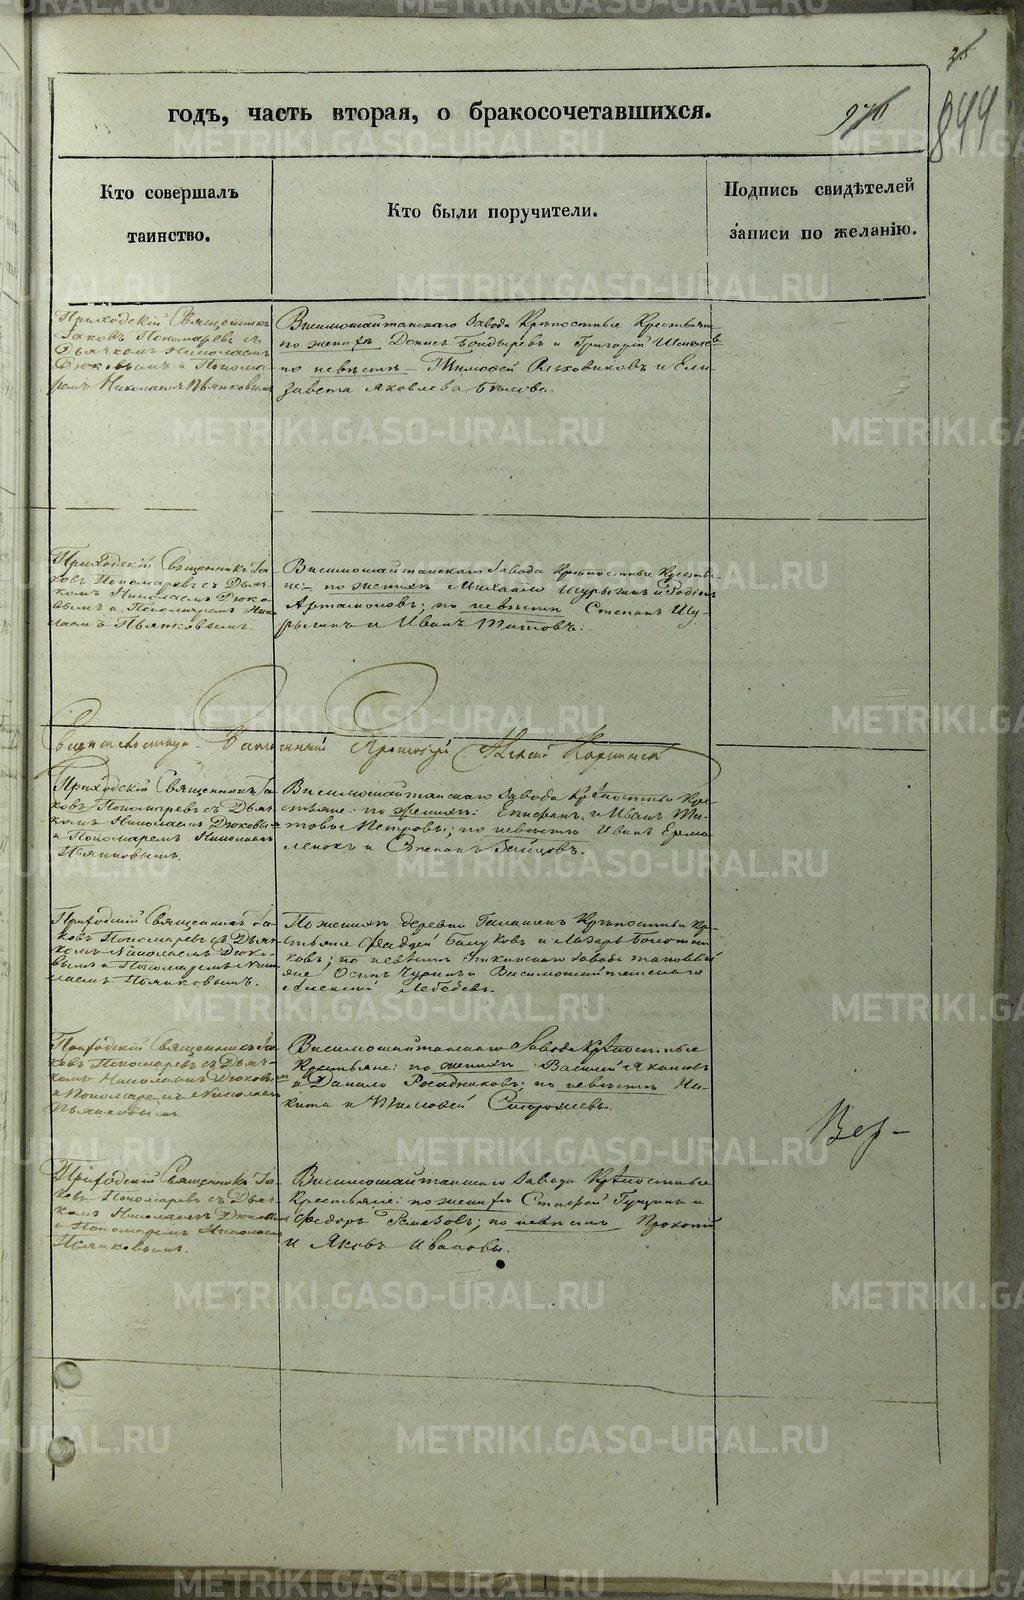 годъ, часть вторая, о бракосочетавшихся.
844
Кто совершалъ
таинство.
Кто были поручители.
Подпись свидѣтелей
записи по желанію.
Приходскій Священникъ
Іаковъ Пономаревъ съ
Дьячкомъ Николаемъ
Дюковымъ и Понома-
ремъ Николаемъ Пьянковымъ
Висимошайтанскаго Завода Крѣпостные Крестьяне
по женихѣ Денисъ Бондыревъ и Григорій
по невѣстѣ Тимофей Ольховиковъ и Ели-
завета Яковлева
Приходскій Священникъ Іа-
ковъ Пономаревъ съ Дьяч-
комъ Николаемъ Дюко-
вымъ и Пономаремъ Нико-
лаемъ Пьянковымъ.
Висимошайтанскаго Завода Крѣпостные Крестья-
не: по женихѣ Михайло Шурыгинъ и Родіонъ
Артамоновъ; по невѣстѣ Степанъ Шу-
рыгинъ и Иванъ Титовъ.
Свидѣтельствовалъ Благочинный Протоіерей
Приходскій Священникъ Іа-
ковъ Пономаревъ съ Дьяч-
комъ Николаемъ Дюковымъ
и Пономаремъ Николаемъ
Пьянковымъ.
Висимошайтанскаго Завода Крѣпостные Кре-
стьяне: по женихѣ: Епифанъ и Иванъ Ти-
товы Петровъ; по невѣстѣ Иванъ Ермо-
ленокъ и Степанъ Зайцовъ.
Приходскій Священникъ Іа-
ковъ Пономаревъ съ Дьяч-
комъ Николаемъ Дюко-
вымъ и Пономаремъ Нико-
лаемъ Пьянковымъ.
По женихѣ деревни Галашекъ Крѣпостные Кре-
стьяне Фаддей и Лазарь Болотни-
ковъ; по невѣстѣ Уткинскаго завода таковые
Осипъ Чуринъ и Висимошайтанскаго
Алексей Лебедевъ.
Приходскій Священникъ Іа-
ковъ Пономаревъ съ Дьяч-
комъ Николаемъ Дюковымъ
и Пономаремъ Николаемъ
Пьянковымъ.
Висимошайтанскаго Завода Крѣпостные
Крестьяне: по женихѣ Василій Якимовъ
и Данило Росадниковъ; по невѣстѣ Ни-
кита и Тимофей Сторожевы.
Вер-
Приходскій Священникъ Іа-
ковъ Пономаревъ съ Дьяч-
комъ Николаемъ Дюковымъ
и Пономаремъ Николаемъ
Пьянковымъ.
Висимошайтанскаго Завода Крѣпостные
Крестьяне: по женихѣ и
Федоръ Ремезовъ; по невѣстѣ Прокопій
и Яковъ Ивановы.
METRIKI.GASO-URAL.RU